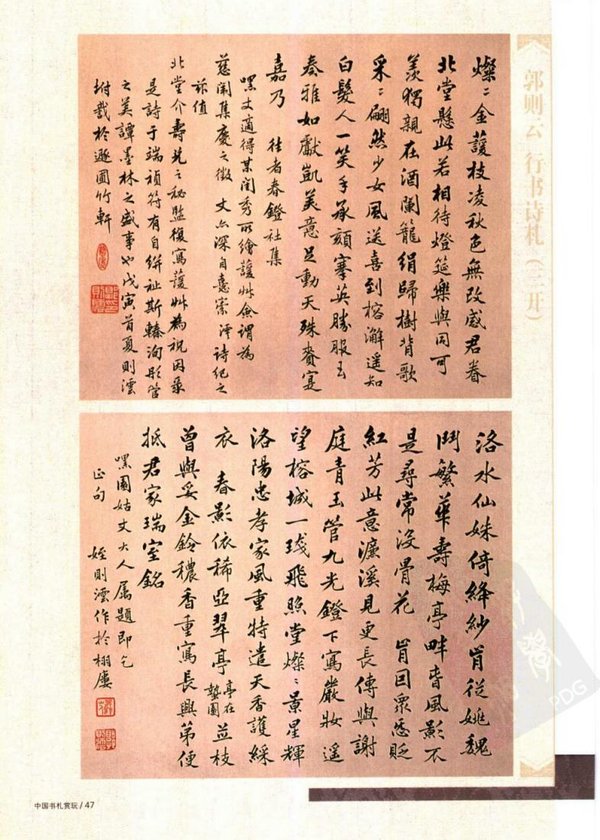 郭则云 行书诗札（二开）
燦二金萱枝凌秋色無改感君眷
北堂懸此若相待燈筵樂與同可
羨獨親在酒闌籠絹歸樹背歌
采二翩然少女風送喜到榕澥遥知
白髮人一笑手承頦搴英勝服玉
奏雅如獻凱美意足動天殊賚宴
嘉乃 往者春鐙社集
嘿丈適得某閨秀所繪萱艸僉謂為
慈闈集慶之徵 丈亦深自憙索澐詩紀之
玆值
北堂介壽先之秘監復寫萱艸為祝因录
是詩于端禎符有自絣祉斯臻洵彤管
之美譚墨林之盛事也戊寅首夏則澐
坿載於遯圃竹軒
洛水仙姝倚絳紗肯從姚魏
鬥繁華壽梅亭畔香風影不
是尋常没骨花 肯因衆悉貶
紅芳此意濂溪見更長傳與謝
庭青玉管九光鐙下寫嚴妝 遥
望榕城一琖飛照堂燦二景星輝
洛陽忠孝家風重特遣天香護綵
衣 春影依稀亞翠亭 亭在蟄園 並枝
曾與妥金鈴穠香重寫長興第便
抵君家瑞室銘
嘿園姑丈大人属題即乞
正句 姪則澐作於栩廔
中国书札赏玩 / 47
PDG